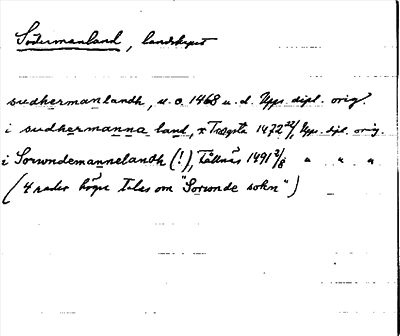 Södermanland, landskapet
sudhermanlandh, u. o. 1468 u. d. Upps. dipl. orig.
i sudhermanna land, x 1472 22/1, Upps. dipl. orig.
i Sorwndemannelandh (!), Tällnäs 1491 2/8 " " "
(4 rader högre talas om "Sorwnde sokn")